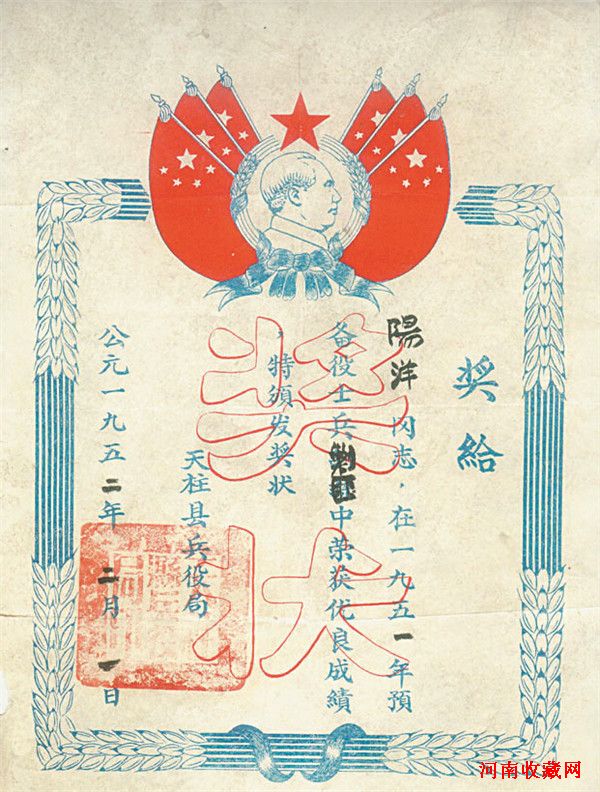 奖给
陽洋同志，在一九五一年預
备役士兵剿匪中荣获优良成績
，特頒发奖状
天柱县兵役局
公元一九五二年二月一日
奖状
河南收藏网